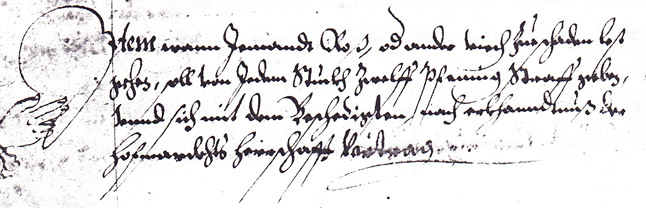 Item wann Jemandt Roß, od ander viech Zueschaden lest
gehen, soll von Jedem Stuckh Zwelff Pfenning Straff geben,
vnnd sich mit dem Beschedigten nach erkhanndtnus der
Hofmarchts Herrschafft Vertragen